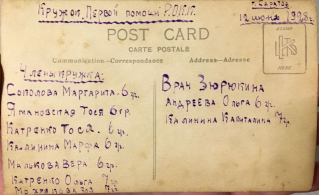 Кружок Первой помощи Р.О.К.К.
г. Саратов
12 июня 1928 г.
POST CARD
CARTE POSTALE
Communication—Correspondance
Address—Adresse
STAMP
HERE
Члены кружка:
Соколова Маргарита. 6 гр.
Тося 6 гр.
Катренко Тоса. 6 гр.
Калинина Марфа 6 гр.
Малькова Вера 6 гр.
Катренко Ольга 7 гр.
7 гр.
Врач Зюрюкина
Андреева Ольга 6 гр.
Калинина Капиталина 7 гр.